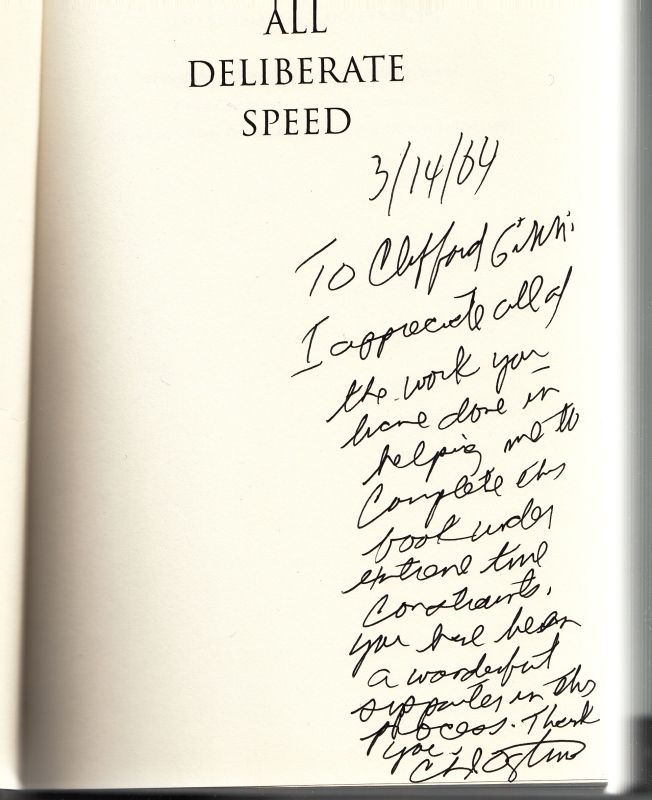 ALL
DELIBERATE
SPEED
3/14/04
To Clifford
I appreciate all of
the work you
have done in
helping me to
complete this
book under
extreme time
constraints.
you have been
a wonderful
supporter in this
process. Thank
you.